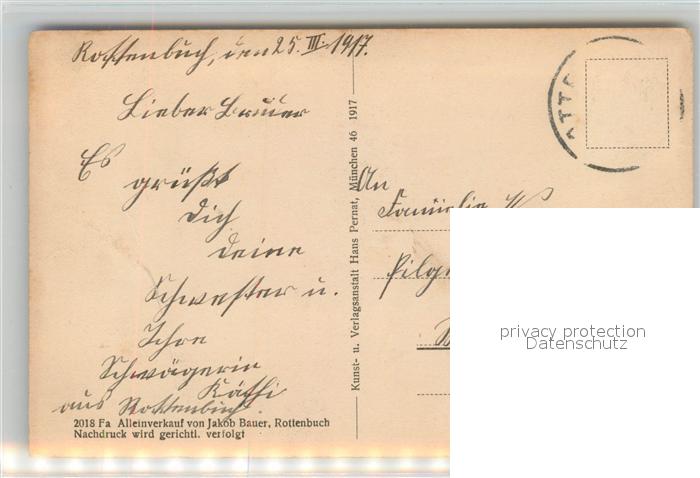 Rottenbuch, den 25. III. 1917.
Lieber Bruder
Es
grüßt
Dich
deine
Schwester u.
Ihre
Schwägerin
Käthi
aus Rottenbuch.
2018 Fa Alleinverkauf von Jakob Bauer, Rottenbuch
Nachdruck wird gerichtl. verfolgt
Kunst- u. Verlagsanstalt Hans Pernat, München 46 1917
ATTO
An
Familie
Pilg
privacy protection
Datenschutz